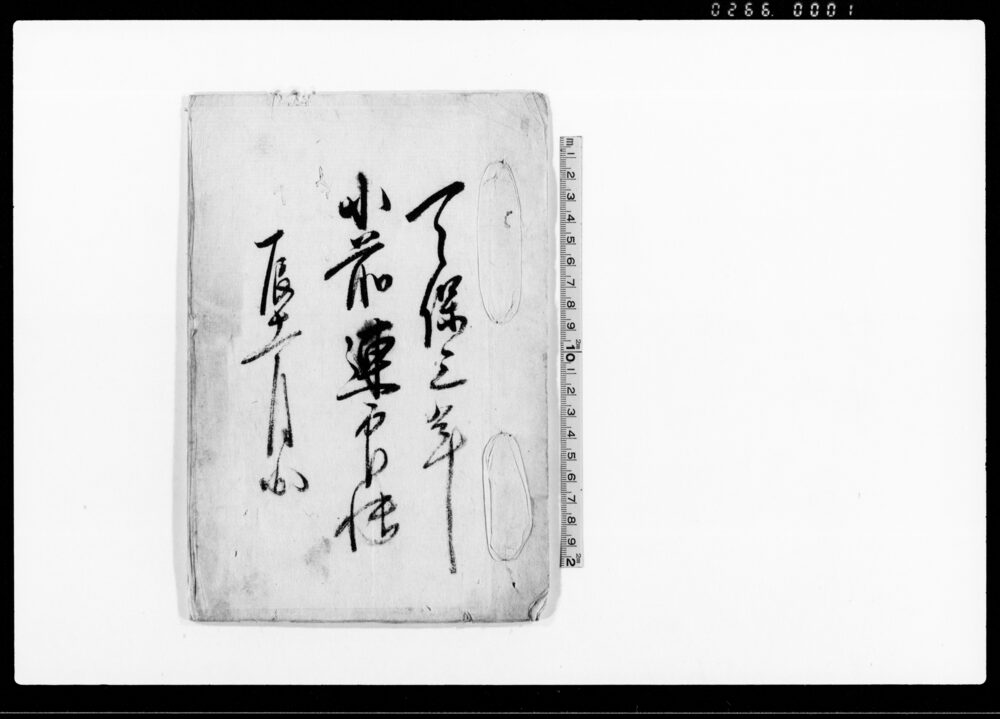 0266. 0001
天保三年
小前連印帳
辰十一月
m 1 2 3 4 5 6 7 8 9 10 1 2 3 4 5 6 7 8 9 2